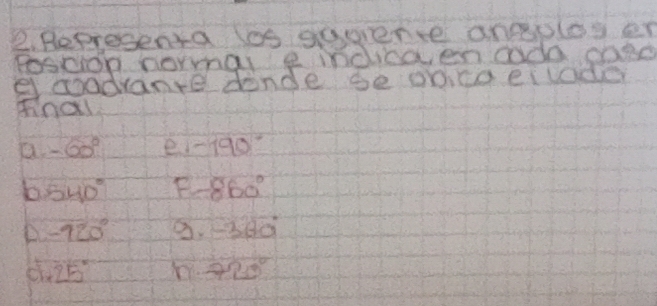 2. Representa los siguiente angulos en
Posicion normal e indica en cada caso
el cuadrante donde se ubica el lado
Final.
a. -60° e. -190°
b. 540° F. -860°
-720° g. -380°
d. 25° h. 720°